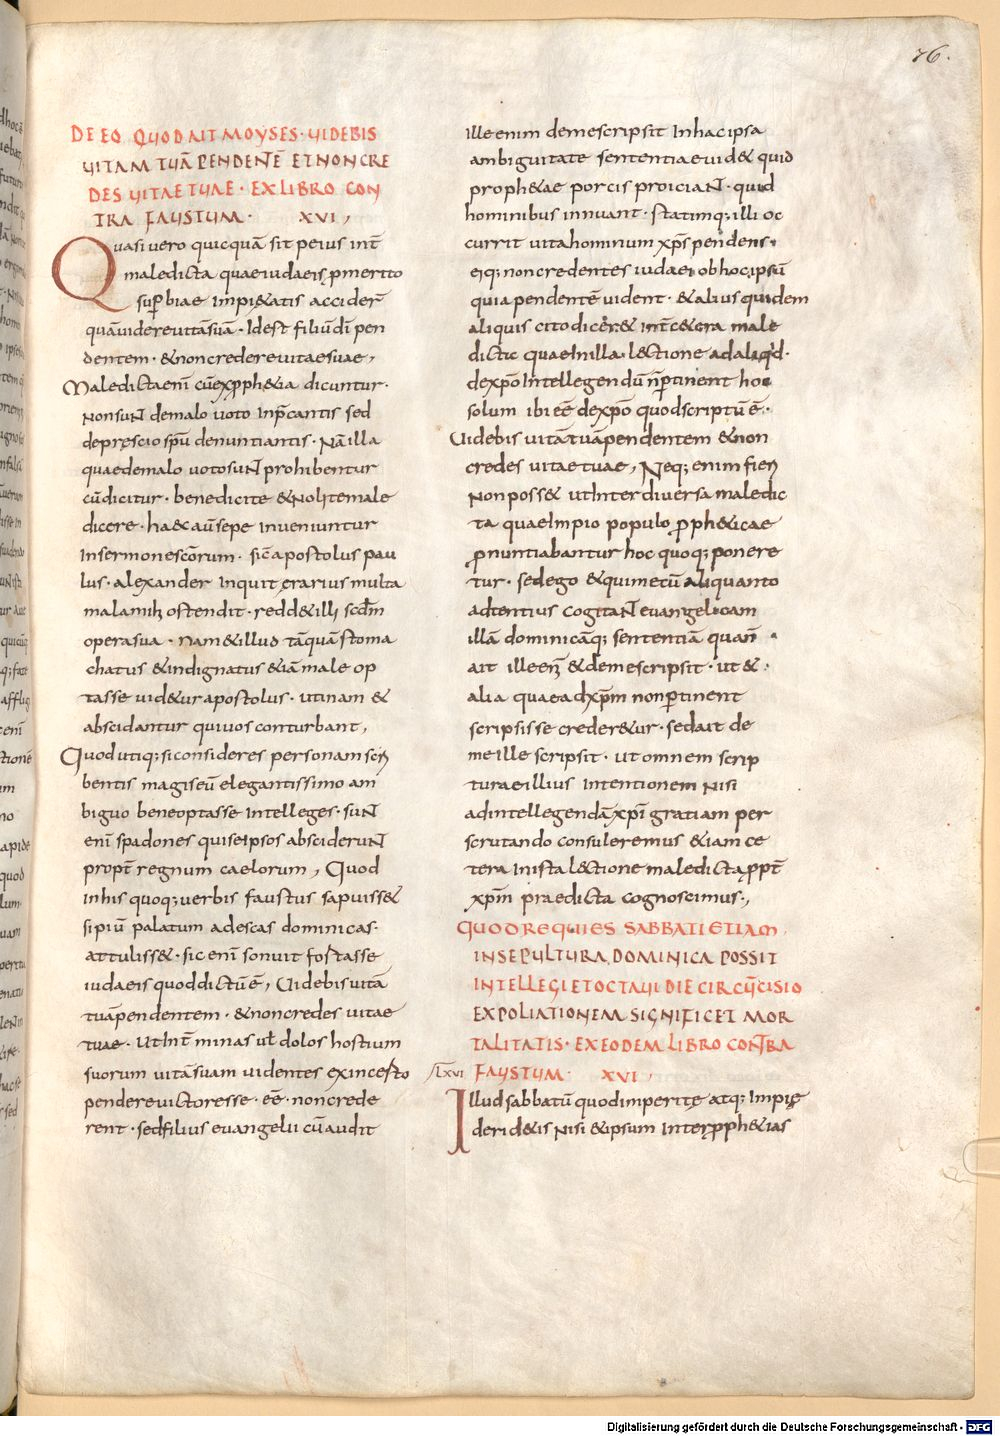 76.
DE EO QUOD AIT MOYSES · UIDEBIS
UITAM TUĀ PENDENTĒ ET NON CRE
DES UITAE TUAE · EX LIBRO CON
TRA FAUSTUM · XVI,
Quasi uero quicquā sit peius int̄
maledicta quae iudaeis ꝓ merito
sup̄biae impi&atis accider̄
quā uidere uitā suā · Idest filiū dī pen
dentem · & non credere uitae suae,
Maledicta eni cū ex ꝓph&ia dicuntur ·
non sunt de malo uoto inp̄cantis sed
de prescio spū denuntiantis · Nā illa
quae de malo uoto sunt prohibentur
cū dicitur · benedicite & nolite male
dicere · haec aū sepe inueniuntur
in sermone sc̄orum · sic apostolus pau
lus · alexander inquit erarius multa
mala mihi ostendit · redd& illi sc̄dm
opera sua · nam & illud tāquā stoma
chatus & indignatus &iā male op
tasse uid&ur apostolus · utinam &
abscidantur qui uos conturbant,
Quod utiq; si consideres personam scri
bentis magis eū elegantissimo am
biguo bene optasse intelleges · sunt
eni spadones qui seipsos absciderunt
propt̄ regnum caelorum, Quod
in his quoq; uerbis faustus sapuiss&
si piū palatum ad escas dominicas ·
attuliss& · sic eni sonuit fortasse
iudaeis quod dictū ē, Uidebis uitā
tuā pendentem · & non credes uitae
tuae · ut int̄ minas uł dolos hostium
suorum uitā suam uidentes ex incerto
pendere uictores se · eē · non crede
rent · sed filius euangelii cū audit
ille enim de me scripsit in hac ipsa
ambiguitate sententiae uid& quid
proph&ae porcis proiciant · quid
hominibus innuant · statimq; illi oc
currit uita hominum xp̄s pendens ·
eiq; non credentes iudaei ob hoc ipsū
quia pendentē uident · & alius quidem
aliquis cito dicer& int̄ c&era male
dicta quae in illa l&ctione ad aliq̄d ·
de xp̄o intellegendū n̄ p̄tinent hoc
solum ibi eē de xp̄o quod scriptū ē ·
Uidebis uitā tuā pendentem & non
credes uitae tuae, Neq; enim fieri
non poss& ut inter diuersa maledic
ta quae impio populo ꝓph&icae
ꝓnuntiabantur hoc quoq; ponere
tur · sed ego & qui mecū aliquanto
adtentius cogitant euangelicam
illā dominicāq; sententiā quan̄
ait ille eni & de me scripsit · ut & ·
alia quae ad xp̄m non p̄tinent
scripsisse creder&ur · sed ait de
me ille scripsit · ut omnem scrip
turae illius intentionem nisi
ad intellegendā xp̄i gratiam per
scrutando consuleremus &iam ce
tera in ista l&ctione maledicta ꝓpt̄
xp̄m praedicta cognoscimus ·,
QUOD REQUIES SABBATI ETIAM
IN SEPULTURA DOMINICA POSSIT
INTELLEGI ET OCTAUI DIE CIRCŪCISIO
EXPOLIATIONEM SIGNIFICET MOR
TALITATIS · EX EODEM LIBRO CONTRA
LXVI FAUSTUM · XVI ·
Illud sabbatū quod imperite atq; impie
derid&is nisi & ipsum inter ꝓph&ias
Digitalisierung gefördert durch die Deutsche Forschungsgemeinschaft - DFG